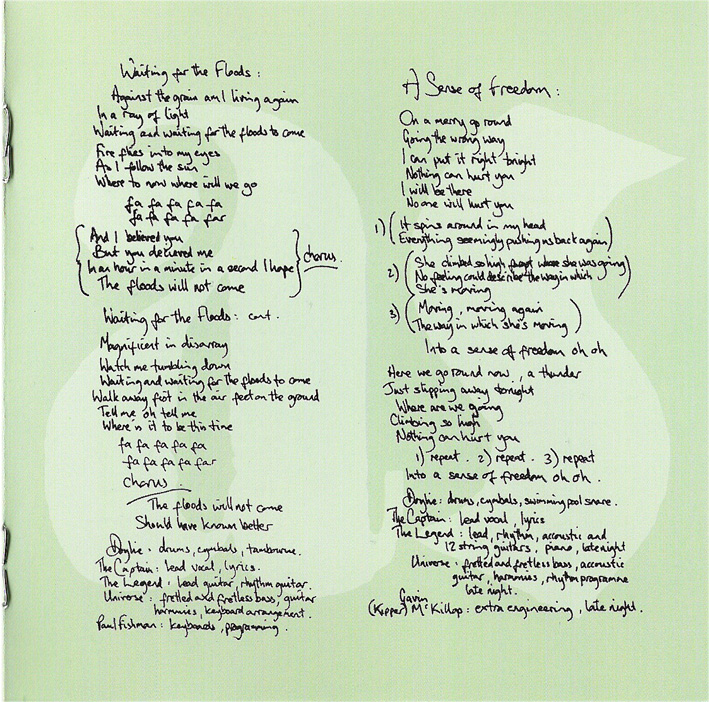 Waiting for the Floods :
Against the grain am I living again
In a ray of light
Waiting and waiting for the floods to come
Fire flies into my eyes
As I follow the sun
Where to now where will we go
fa fa fa fa fa
fa fa fa fa far
And I believed you
But you deceived me
In an hour in a minute in a second I hope
The floods will not come
chorus.
Waiting for the Floods : cont.
Magnificent in disarray
Watch me tumbling down
Waiting and waiting for the floods to come
Walk away foot in the air feet on the ground
Tell me oh tell me
Where is it to be this time
fa fa fa fa fa
fa fa fa fa far
chorus.
The floods will not come
Should have known better
Doylie : drums, cymbals, tambourine.
The Captain : lead vocal, lyrics.
The Legend : lead guitar, rhythm guitar.
Universe : fretled and fretless bass, guitar
harmonies, keyboard arrangement.
Paul Fishman : keyboards, programming.
A Sense of Freedom :
On a merry go round
Going the wrong way
I can put it right bright
Nothing can hurt you
I will be there
No one will hurt you
1) (It spins around in my head
Everything seemingly pushing us back again)
2) (She climbed so high where she was going
No feeling could describe the way in which
She's moving)
3) (Moving, moving again
The way in which she's moving)
Into a sense of freedom oh oh
Here we go round now, a thunder
Just slipping away tonight
Where are we going
Climbing so high
Nothing can hurt you
1) repeat. 2) repeat. 3) repeat
Into a sense of freedom oh oh.
Doylie : drums, cymbals, swimming pool snare.
The Captain : lead vocal, lyrics
The Legend : lead, rhythm, accoustic and
12 string guitars, piano, late night
Universe : fretled and fretless bass, accoustic
guitar, harmonies, rhythm programme
late night.
Gavin
(Kipper) McKillop : extra engineering, late night.